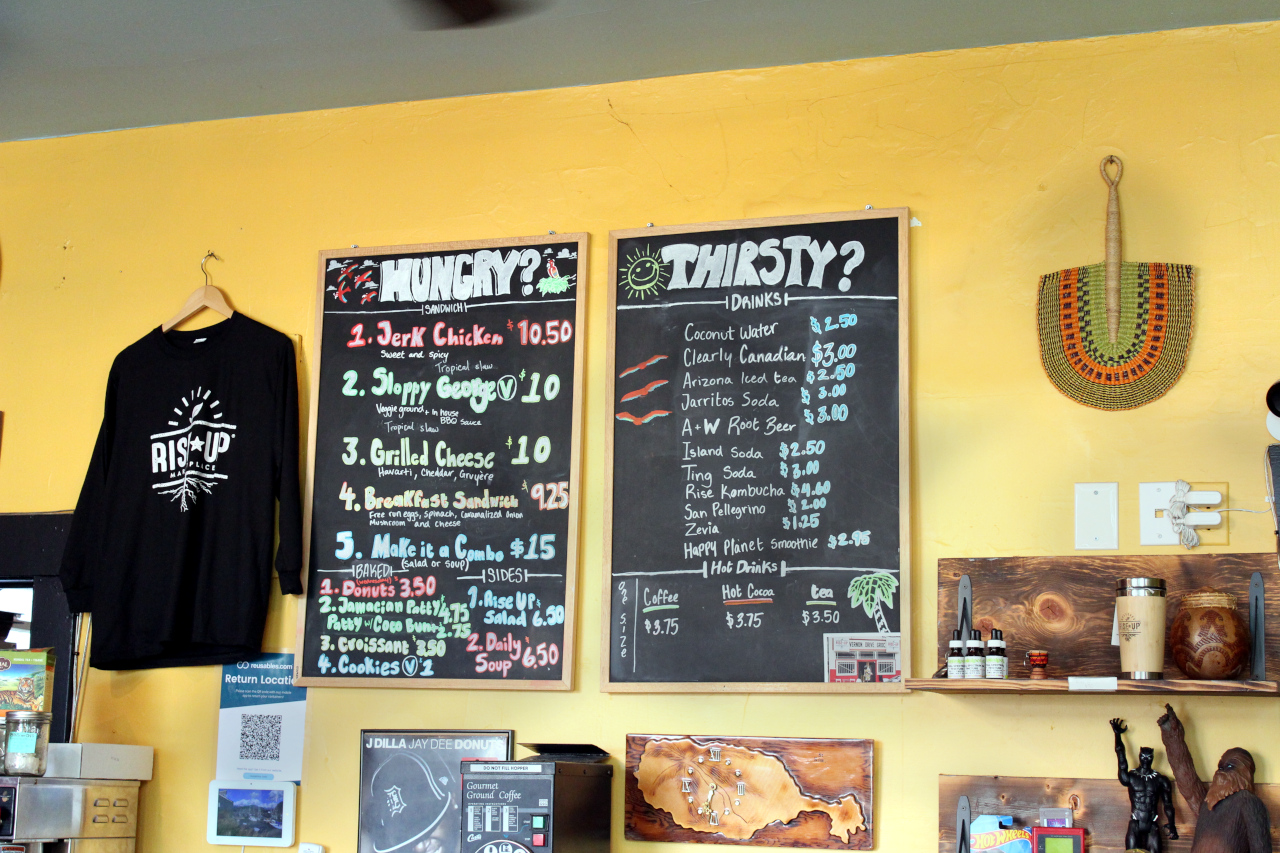 HUNGRY?
SANDWICH
1. Jerk Chicken $10.50
Sweet and spicy
Tropical slaw
2. Sloppy George V $10
Veggie ground + In house
BBQ sauce
Tropical slaw
3. Grilled Cheese $10
Havarti, Cheddar, Gruyère
4. Breakfast Sandwich 9.25
Free run eggs, spinach, Caramalized Onion
Mushroom and cheese
5. Make it a Combo $15
(Salad or soup)
BAKED
1. Donuts 3.50
2. Jamaican Patty 4.75
Patty w/ Coco Bun 2.75
3. Croissant 3.50
4. Cookies V 1
SIDES
1. Rise UP
Salad 6.50
2. Daily
Soup 6.50
THIRSTY?
DRINKS
Coconut Water $2.50
Clearly Canadian $3.00
Arizona Iced tea $2.50
Jarritos Soda $3.00
A+W Root Beer $3.00
Island Soda $2.50
Ting Soda $3.00
Rise Kombucha $4.60
San Pellegrino $2.00
Zevia $1.25
Happy Planet Smoothie $2.95
Hot Drinks
one size
Coffee
$3.75
Hot Cocoa
$3.75
tea
$3.50
RISE★UP
reusables.com
Return Locatio
J DILLA JAY DEE DONUTS
DO NOT FILL HOPPER
Gourmet
Ground Coffee
RISE★UP
Hot Wheels